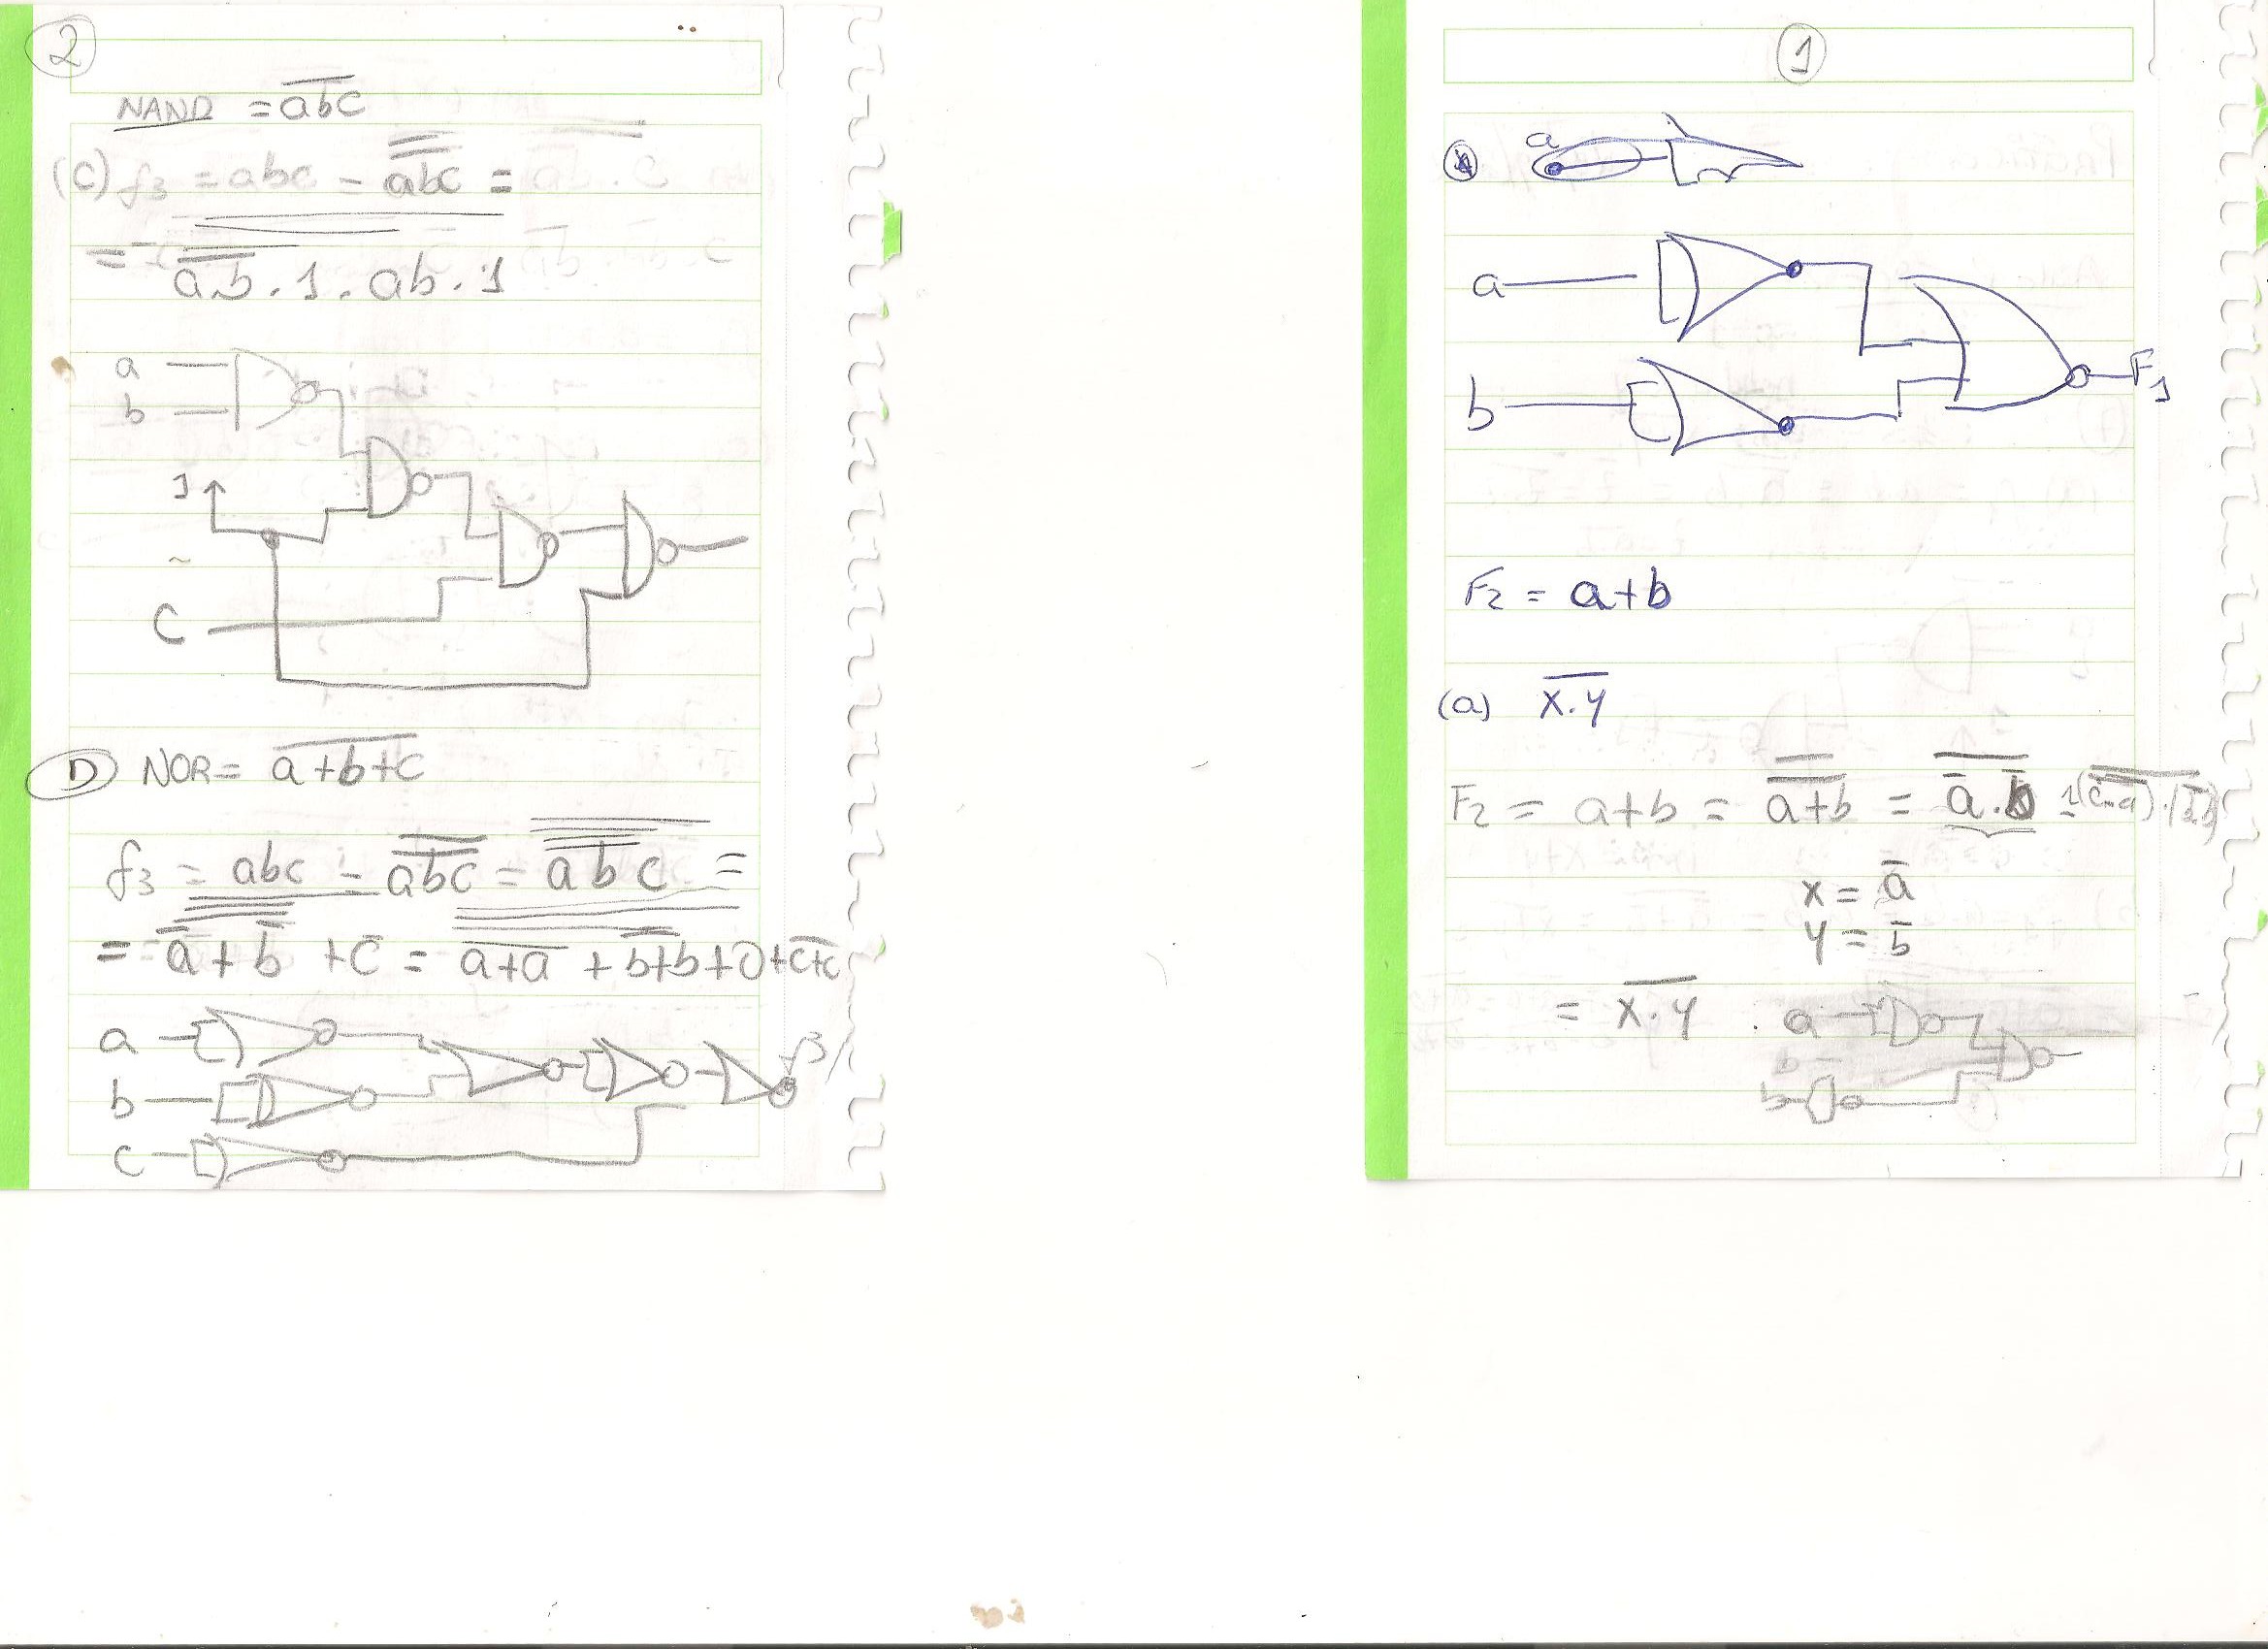 2
NAND = \overline{abc}
(C) f3 = abc = \overline{\overline{abc}} =
= \overline{\overline{a.b}.1}.ab.1
a
b
1
C
D NOR = \overline{a+b+c}
f3 = abc = \overline{\overline{abc}} = \overline{\overline{\overline{\overline{ab}}c}} =
= \overline{a} + \overline{b} + \overline{c} = \overline{a+a} + \overline{b+b}+0+\overline{c+c}
a
b
c
f3
1
a
a
b
F1
F2 = a+b
(a) \overline{x.y}
F2 = a+b = \overline{\overline{a+b}} = \overline{\overline{a}.\overline{b}}
x = \overline{a}
y = \overline{b}
= \overline{x.y}
a
b